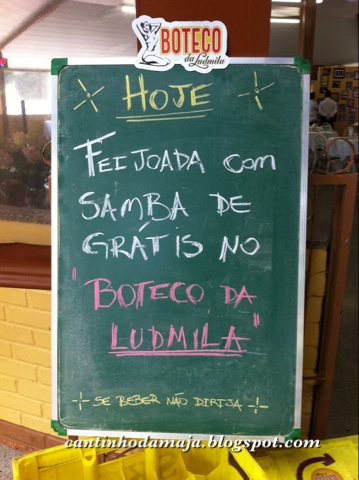 BOTECO
da Ludmila
HOJE
FEIJOADA COM
SAMBA DE
GRÁTIS NO
"BOTECO DA
LUDMILA"
SE BEBER NÃO DIRIJA
cantinhodamaja.blogspot.com